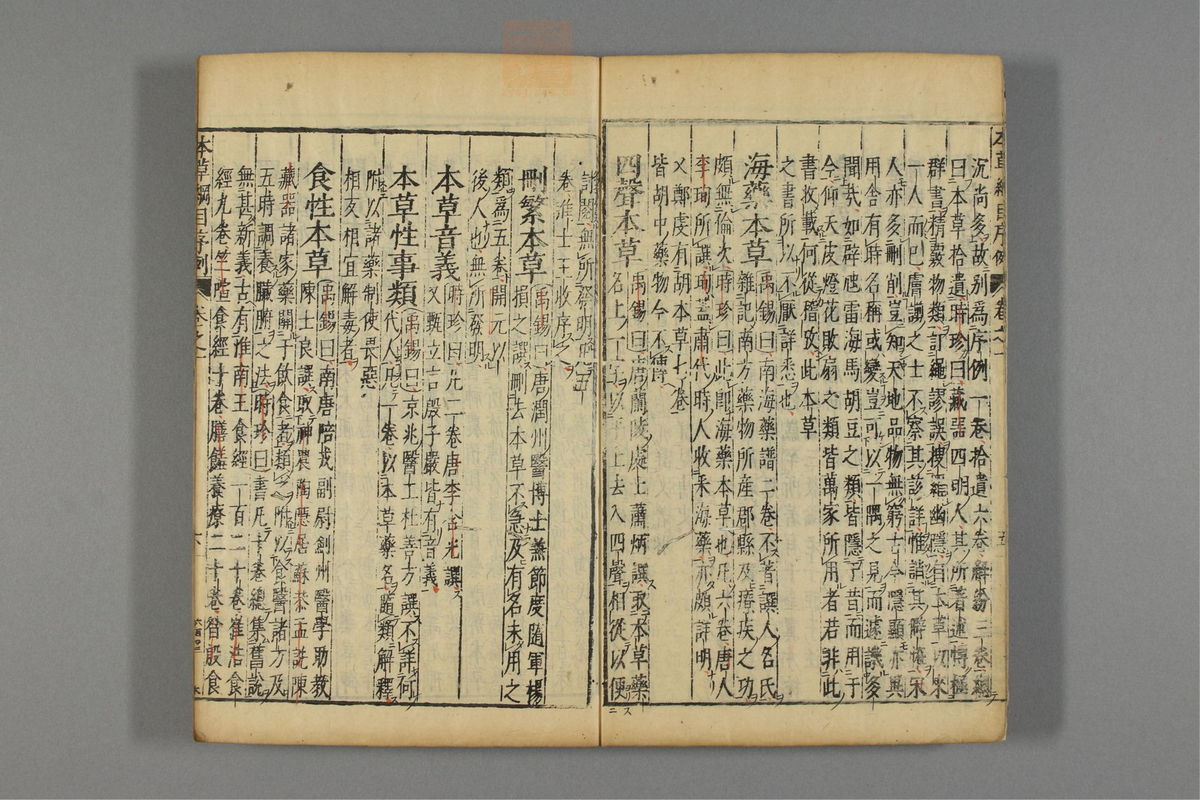 沉尚多故別爲序例一卷拾遺六卷解紛三卷總
曰本草拾遺時珍曰藏器四明人其所著述博極
群書精覈物類訂繩謬誤搜羅幽隱自本草以來
一人而已膚謭之士不察其該詳惟誚其僻怪宋
人亦多刪削豈知天地品物無窮古今隱顯亦異
用舍有時名稱或變豈可以一隅之見而遽譏多
聞哉如辟虺雷海馬胡豆之類皆隱于昔而用于
今仰天皮燈花敗扇之類皆萬家所用者若非此
書收載何從稽考此本草
之書所以不厭詳悉也
海藥本草禹錫曰南海藥譜二卷不著譔人名氏
雜記南方藥物所産郡縣及療疾之功
頗無倫次時珍曰此即海藥本草也凡六卷唐人
李珣所譔珣蓋肅代時人收采海藥亦頗詳明
又鄭虔有胡本草七卷
皆胡中藥物今不傳
四聲本草禹錫曰唐蘭陵處士蕭炳譔取本草藥
名上一字以平上去入四聲相從以便
討閱無所發明凡五
卷進士王收序之
刪繁本草禹錫曰唐潤州醫博士兼節度隨軍楊
損之譔刪去本草不急及有名未用之
類爲五卷開元以
後人也無所發明
本草音義時珍曰凡二卷唐李含光譔
又甄立言殷子嚴皆有音義
本草性事類禹錫曰京兆醫工杜善方譔不詳何
代人凡一卷以本草藥名隨類解釋
附以諸藥制使畏惡
相反相宜解毒者
食性本草禹錫曰南唐陪戎副尉劍州醫學助教
陳士良譔取神農陶隱居蘇恭孟詵陳
藏器諸家藥關于飲食者類之附以食醫諸方及
五時調養臟腑之法時珍曰書凡十卷總集舊說
無甚新義古有淮南王食經一百二十卷崔浩食
經九卷竺暄食經十卷膳羞養療二十卷昝殷食
本草綱目序例 卷之一 五
本草綱目序例 卷之一 六